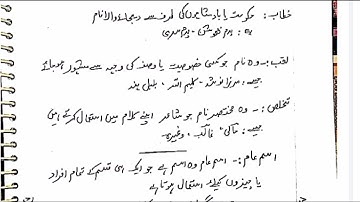 خطاب: حکومت یا بادشاہوں کی طرف سے دیا جانے والا نام
جیسے:
لقب:۔ وہ نام جو کسی خصوصیت یا وصف کی وجہ سے مشہور ہو جائے
جیسے: مرزا نوشہ، کلیم اللہ، بلبل ہند
تخلص:۔ وہ مختصر نام جو شاعر اپنے کلام میں استعمال کرتے ہیں
جیسے: حالی، غالب، وغیرہ
اسم عام:۔ اسم عام وہ اسم ہے جو ایک ہی قسم کے تمام افراد
یا چیزوں کیلئے استعمال ہوتا ہے